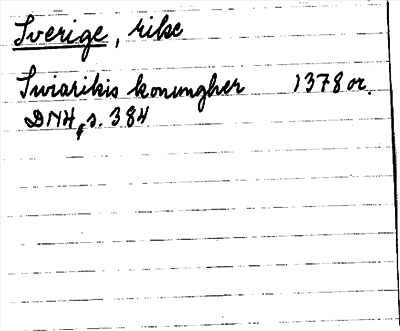 Sverige, rike
Swiarikis konungher 1378 or.
DN4, s. 384